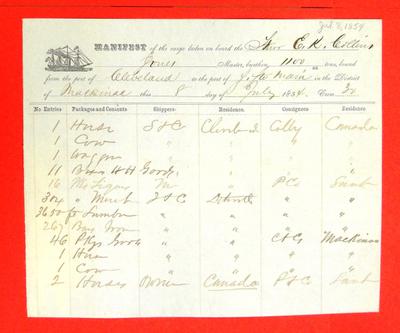 July 8, 1854
MANIFEST of the cargo taken on board the Str E. K. Collins
Jones Master, burthen 1100 Tons, bound
from the port of Cleveland to the port of in the District
of Mackinac this 8 day of July 1854. Crew 30
No. Entries Packages and Contents Shippers Residence. Consignees Residence
1 Horse S & C Clevld O. Colby Canada
1 Cow " " " "
1 Waggon " " " "
11 Boxes H H Goods " " " "
16 M " P & Co Saut
304 " Merch S & C Detroit " "
3650 ft Lumber " " " "
267 Bars Iron " " " "
46 Pkgs Goods " " C & G Mackinac
1 Horse " " " "
1 Cow " " " "
2 Horses Canada P & C Saut